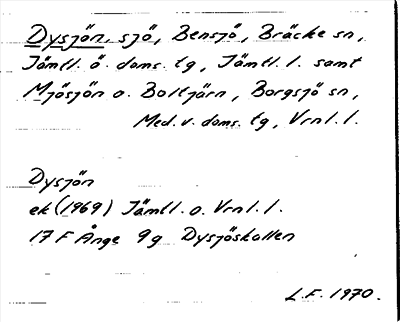 Dysjön, sjö, Bensjö, Bräcke sn,
Jämtl. ö. doms. tg, Jämtl. l. samt
Mjösjön o. Boltjärn, Borgsjö sn,
Med. v. doms. tg, Vrnl. l.
Dysjön
ek (1969) Jämtl. o. Vrnl. l.
17 F Ånge 9g Dysjökallen
L.F. 1970.